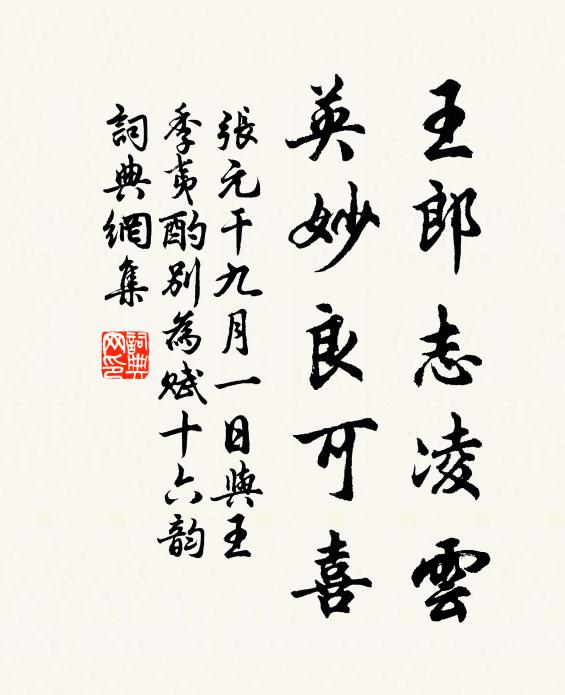 王郎志凌雲
英妙良可喜
張元干九月一日與王
季夷酌別為賦十六韵
詞典網集
詞典網印